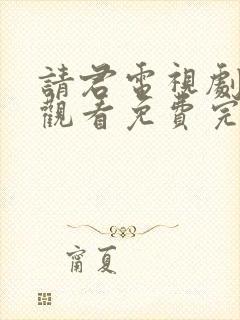 請君電視劇
觀看免費完
甯夏